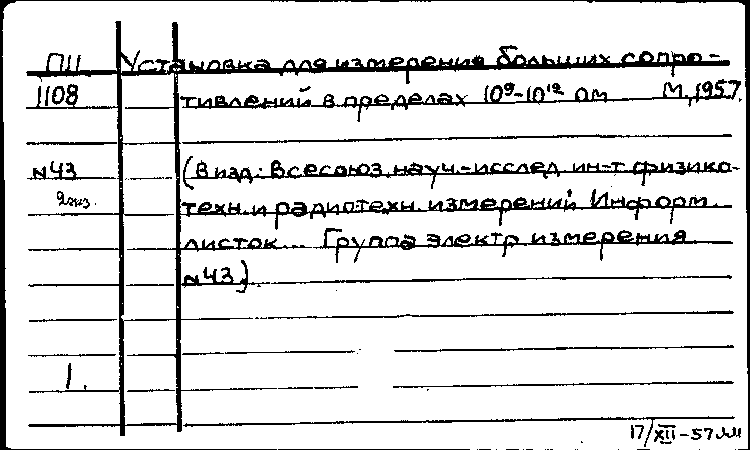 ПII Установка для измерения больших сопро-
1108 тивлений в пределах 10⁹-10¹² ом М, 1957.
N43 (В изд: Всесоюз. науч.-исслед. ин-т физико-
2экз. техн. и радиотехн. измерений Информ.
листок... Группа электр измерения
N43)
1.
17/XII-57